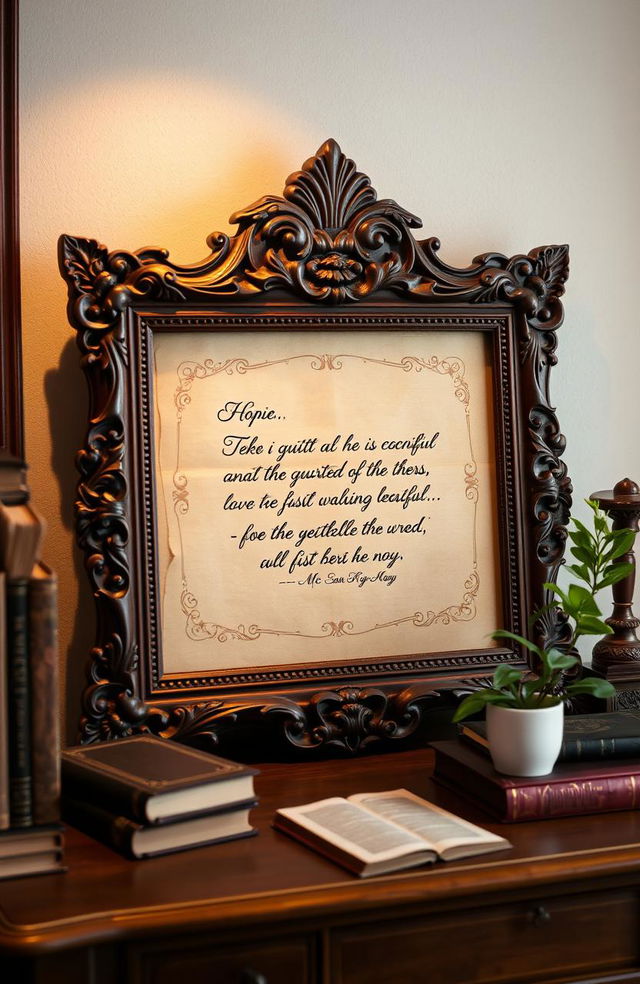 Hopie...
Teke i guitt al he is cocniful
anat the guurted of the thers,
love tre fusit walning lecrtful...
- foe the geitlelle the wred,
aull fist beri he noy.
--- Mc Son Kry-Havy